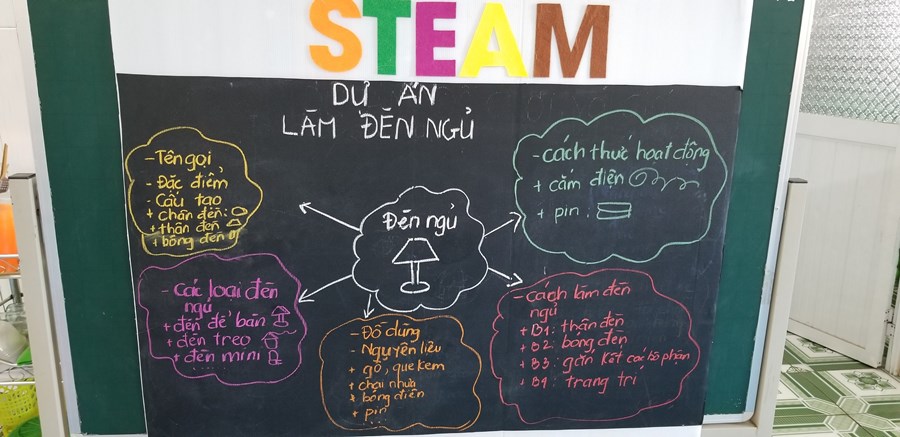 STEAM
DỰ ÁN
LÀM ĐÈN NGỦ
- Tên gọi
- Đặc điểm
- Cấu tạo
+ chân đèn:
+ thân đèn
+ bóng đèn
Đèn ngủ
- cách thức hoạt động
+ cắm điện
+ pin:
- Các loại đèn
ngủ
+ đèn để bàn
+ đèn treo
+ đèn mini
- Đồ dùng
- Nguyên liệu
+ gỗ, que kem
+ chai nhựa
+ bóng điện
+ pin
...
- cách làm đèn
ngủ
+ B1: thân đèn
+ B2: bóng đèn
+ B3: gắn kết các bộ phận
+ B4: trang trí